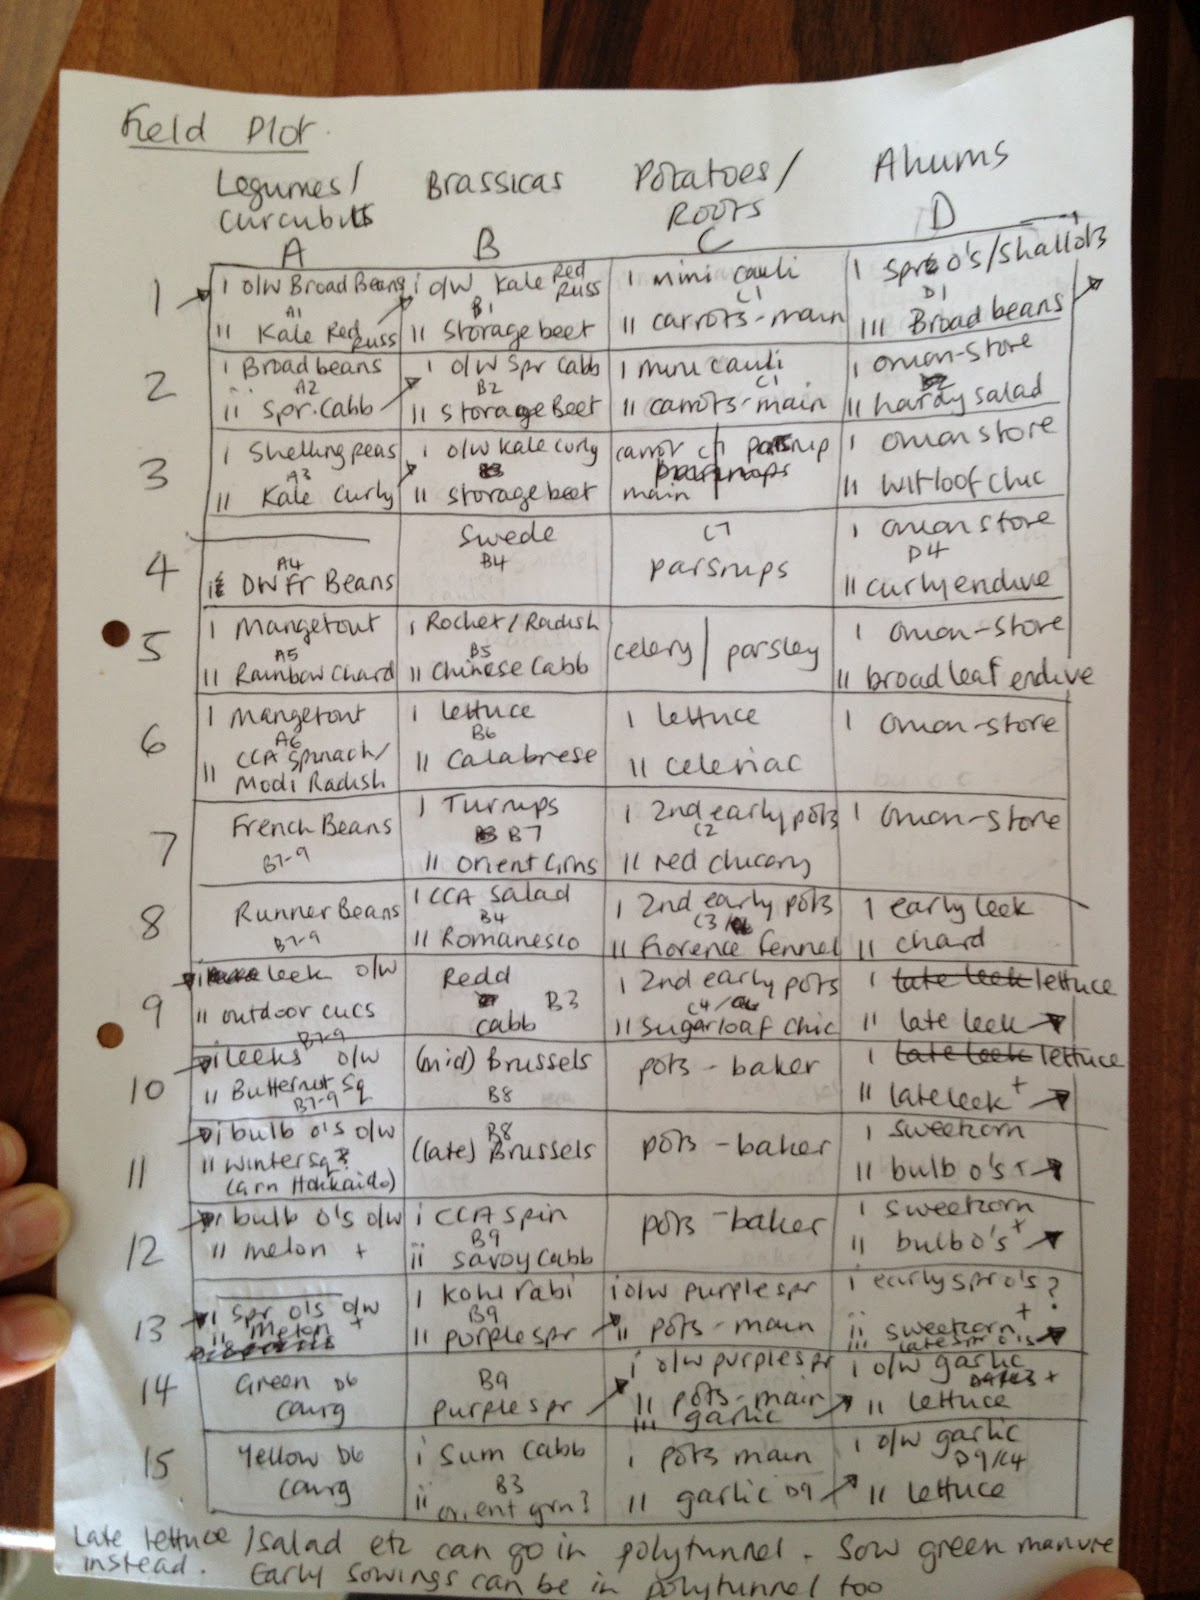 Field Plot.
Legumes/ Brassicas Potatoes/ Aliums
Curcubits Roots
A B C D
1 i o/w Broad Beans i o/w Kale Red Russ i mini cauli i spr o's/shallots
A1 B1 C1 D1
ii Kale Red Russ ii Storage beet ii carrots-main iii Broad beans
2 i Broad beans i o/w spr cabb i mini cauli i onion-store
A2 B2 C1
ii Spr. Cabb ii storage Beet ii carrots-main ii hardy salad
3 i Shelling peas i o/w Kale curly carrot C1 parsnip i onion store
A3 B3
ii Kale Curly ii storage beet main ii witloof chic
4 Swede C7 i onion store
A4 B4 D4
ii DW Fr Beans parsnips ii curly endive
5 i Mangetout i Rocket/Radish celery | parsley i onion-store
A5 B5
ii Rainbow Chard ii Chinese Cabb ii broad leaf endive
6 i Mangetout i lettuce i lettuce i onion-store
A6 B6
ii CCA Spinach/ ii Calabrese ii celeriac
Modi Radish
7 French Beans i Turnips i 2nd early pots i onion-store
B7-9 B7 C2
ii orient Grns ii red chicory
8 Runner Beans i CCA Salad i 2nd early pots i early leek
B7-9 B4 C3/
ii Romanesco ii Florence fennel ii chard
9 leek o/w Redd i 2nd early pots i late leek lettuce
B3 C4/
ii outdoor cucs cabb ii sugarloaf chic ii late leek
B7-9
10 i leeks o/w (mid) Brussels pots - baker i late leek lettuce
ii Butternut Sq B8 ii late leek +
B7-9
11 i bulb o's o/w B8 pots - baker i sweetcorn
ii winter sq? (late) Brussels ii bulb o's +
(Grn Hokkaido)
12 i bulb o's o/w i CCA spin pots - baker i sweetcorn
B9
ii melon + ii savoy cabb ii bulb o's +
13 i spr o's o/w i kohl rabi i o/w purple spr i early spr o's ?
B9
ii Melon + ii purple spr ii pots - main ii sweetcorn +
iii late spr o's
14 Green D6 B9 i o/w purple spr i o/w garlic
courg purple spr ii pots - main ii lettuce
iii garlic
15 Yellow D6 i sum cabb i pots main i o/w garlic
B3 D9/C4
courg ii orient grn? ii garlic D9 ii lettuce
Late lettuce /salad etc can go in polytunnel. Sow green manure
instead. Early sowings can be in polytunnel too